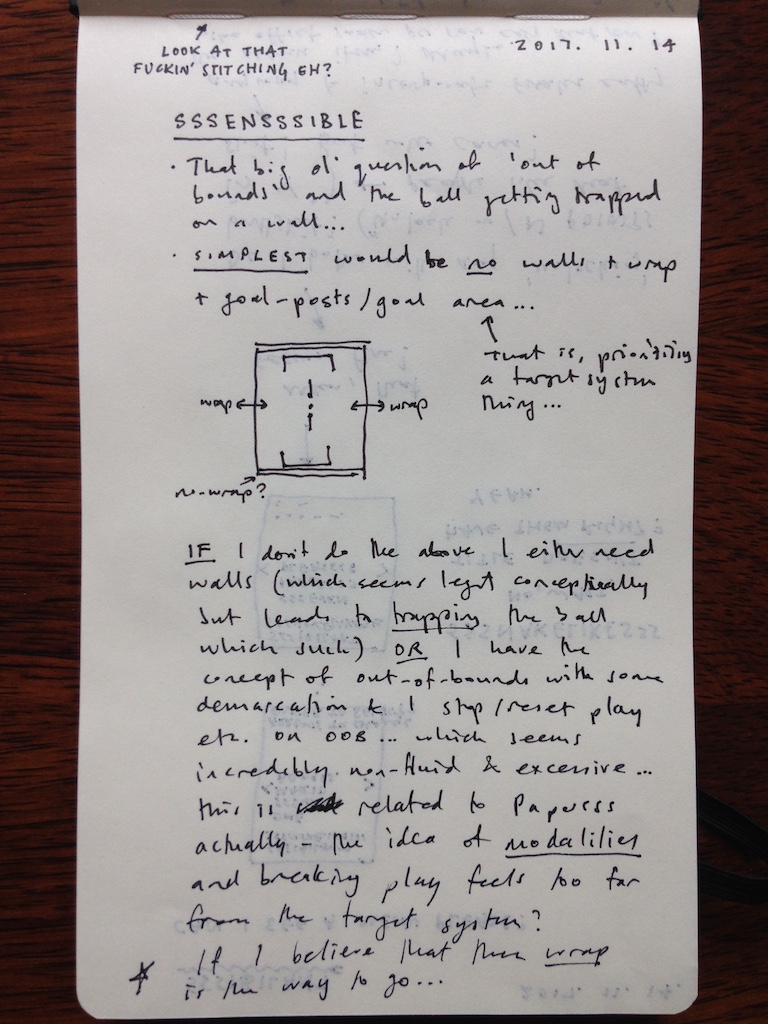 LOOK AT THAT
FUCKIN' STITCHING EH?
2017. 11. 14
SSSENSSSIBLE
• That big ol' question of 'out of
bounds' and the ball getting trapped
on a wall...
• SIMPLEST would be no walls + wrap
+ goal-posts/goal area...
That is, prioritizing
a target system
thing...
wrap
wrap
no-wrap?
IF I don't do the above I either need
walls (which seems legit conceptually
but leads to trapping the ball
which such) OR I have the
concept of out-of-bounds with some
demarcation & I stop/reset play
etc. on OOB... which seems
incredibly non-fluid & excessive...
this is related to
actually - the idea of modalities
and breaking play feels too far
from the target system?
If I believe that then wrap
is the way to go...